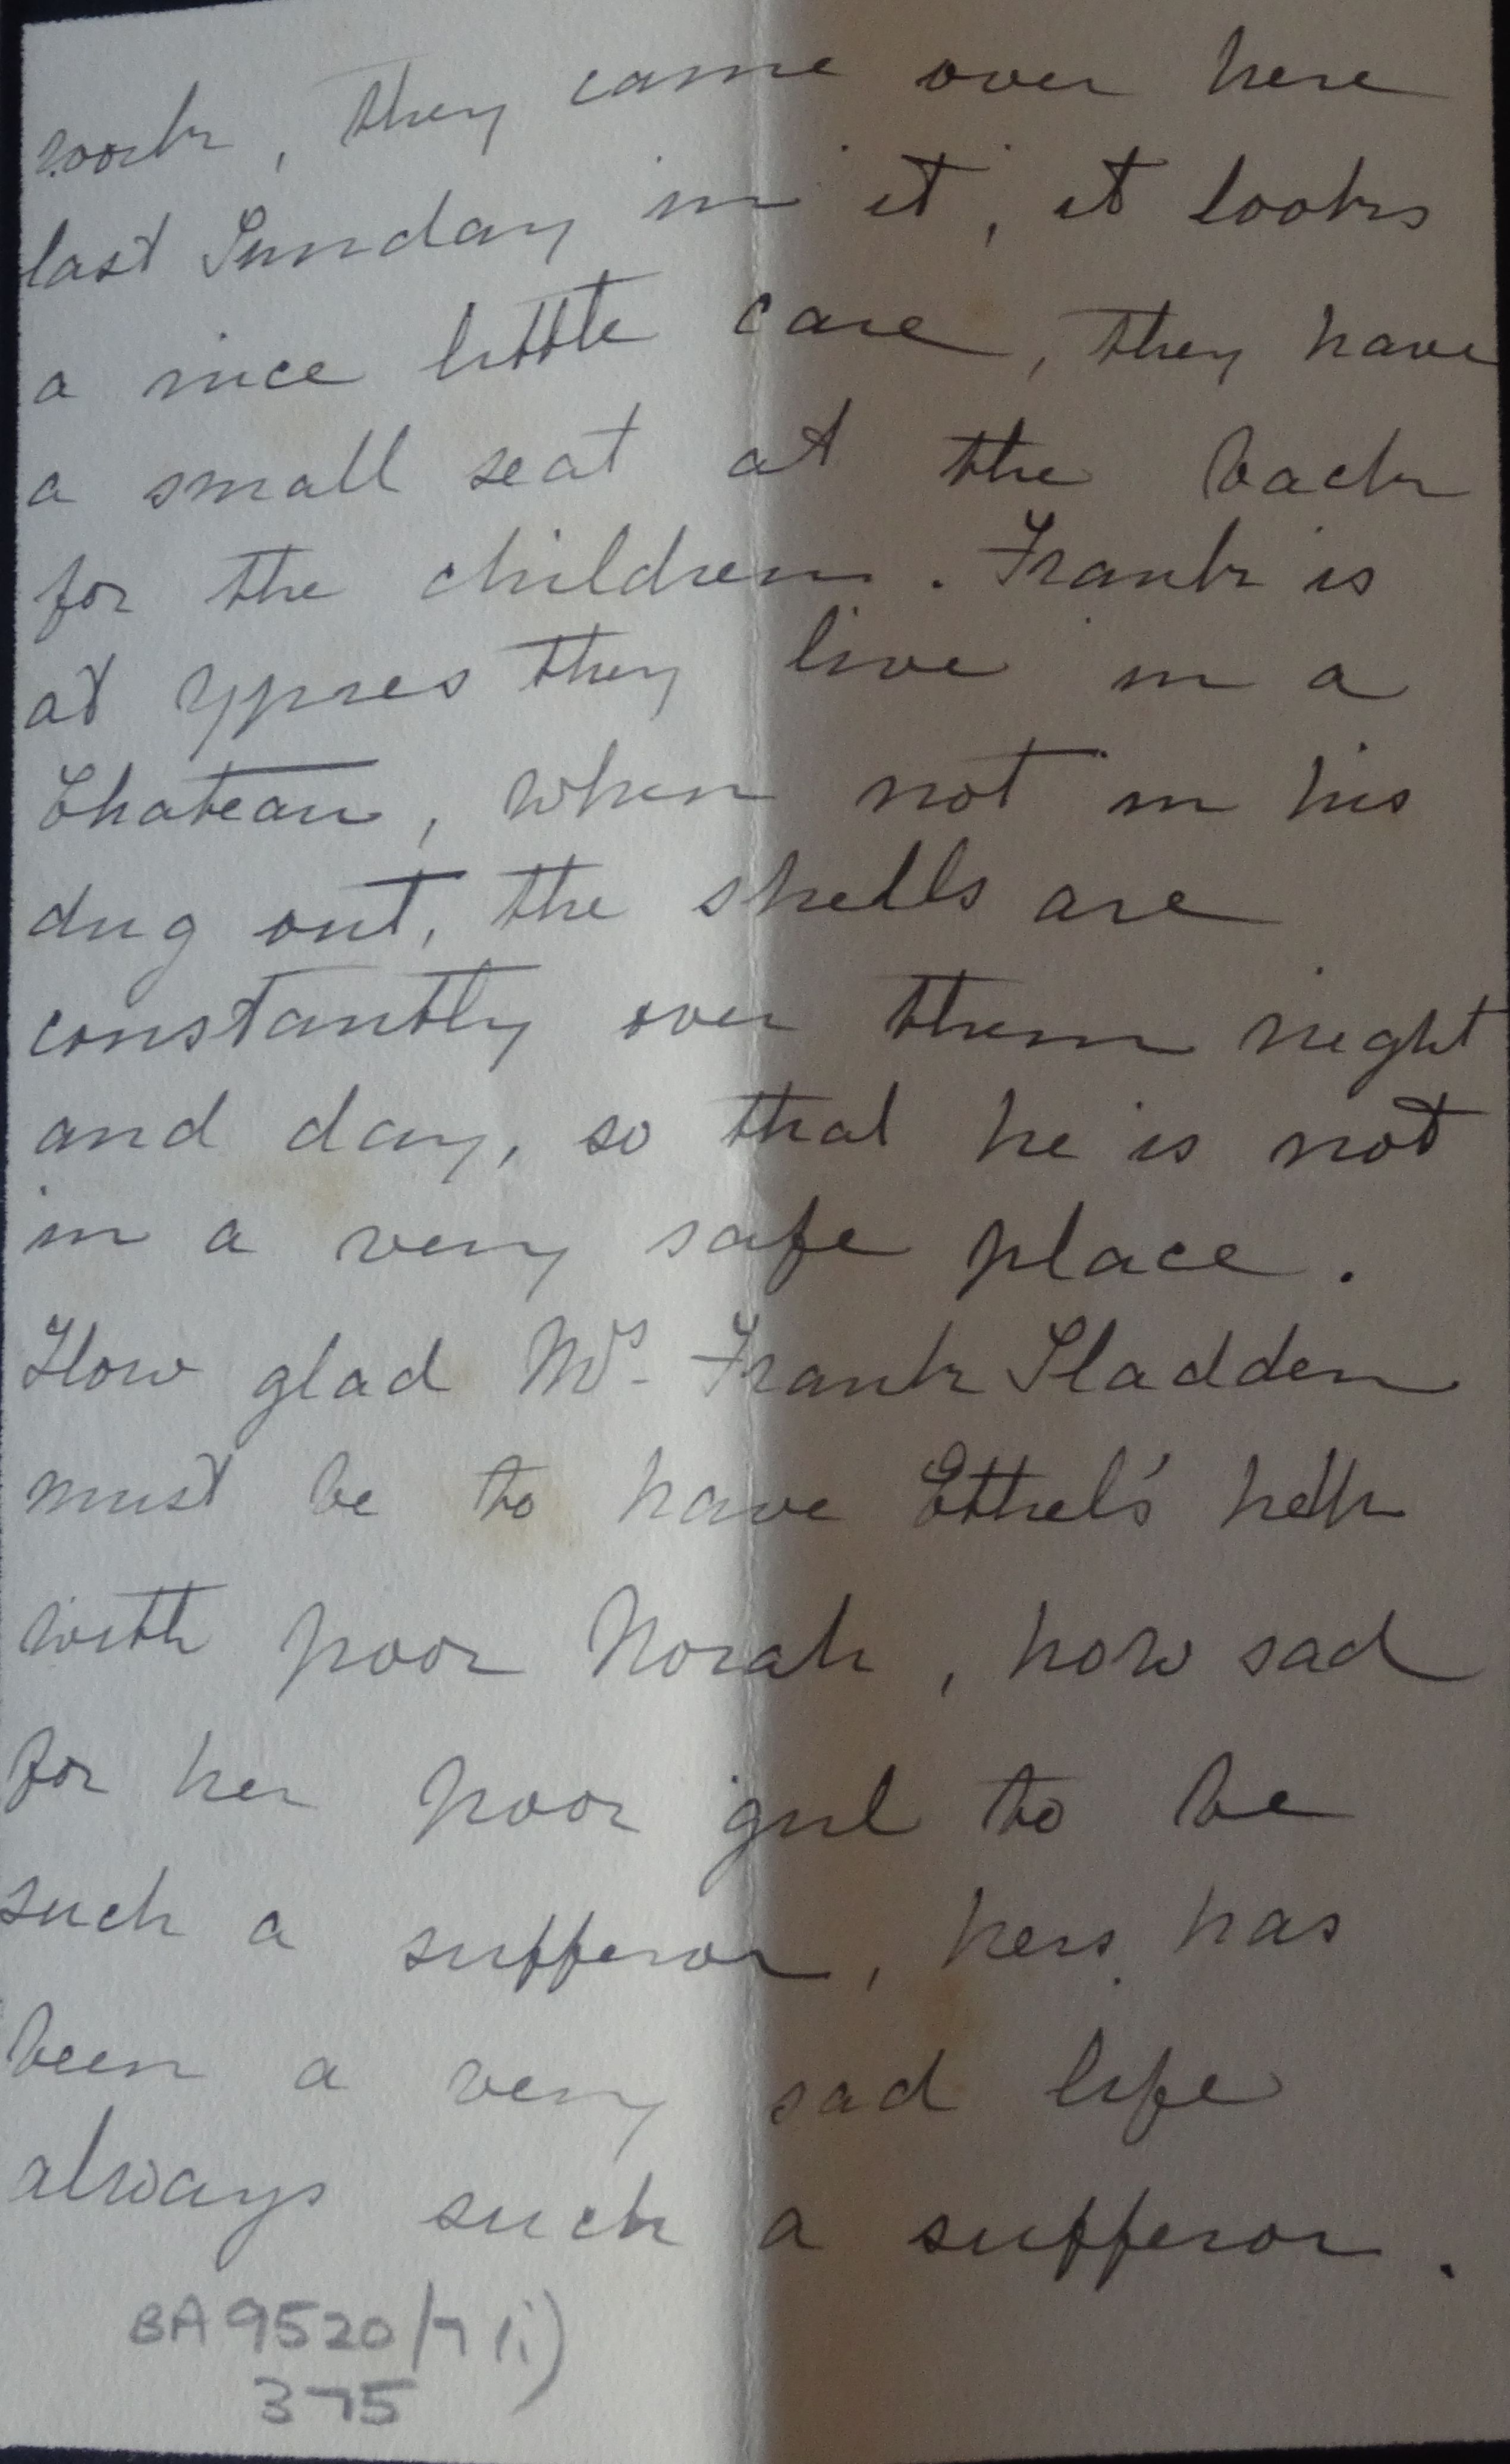 work, they came over here
last Sunday in it, it looks
a nice little care, they have
a small seat at the back
for the children. Frank is
at Ypres they live in a
Chateau, when not in his
dug out, the shells are
constantly over them night
and day, so that he is not
in a very safe place.
How glad Mrs. Frank Sladden
must be to have Ethel's help
with poor Norah, how sad
for her poor girl to be
such a sufferor, hers has
been a very sad life
always such a sufferor.
BA9520/7(i)
375